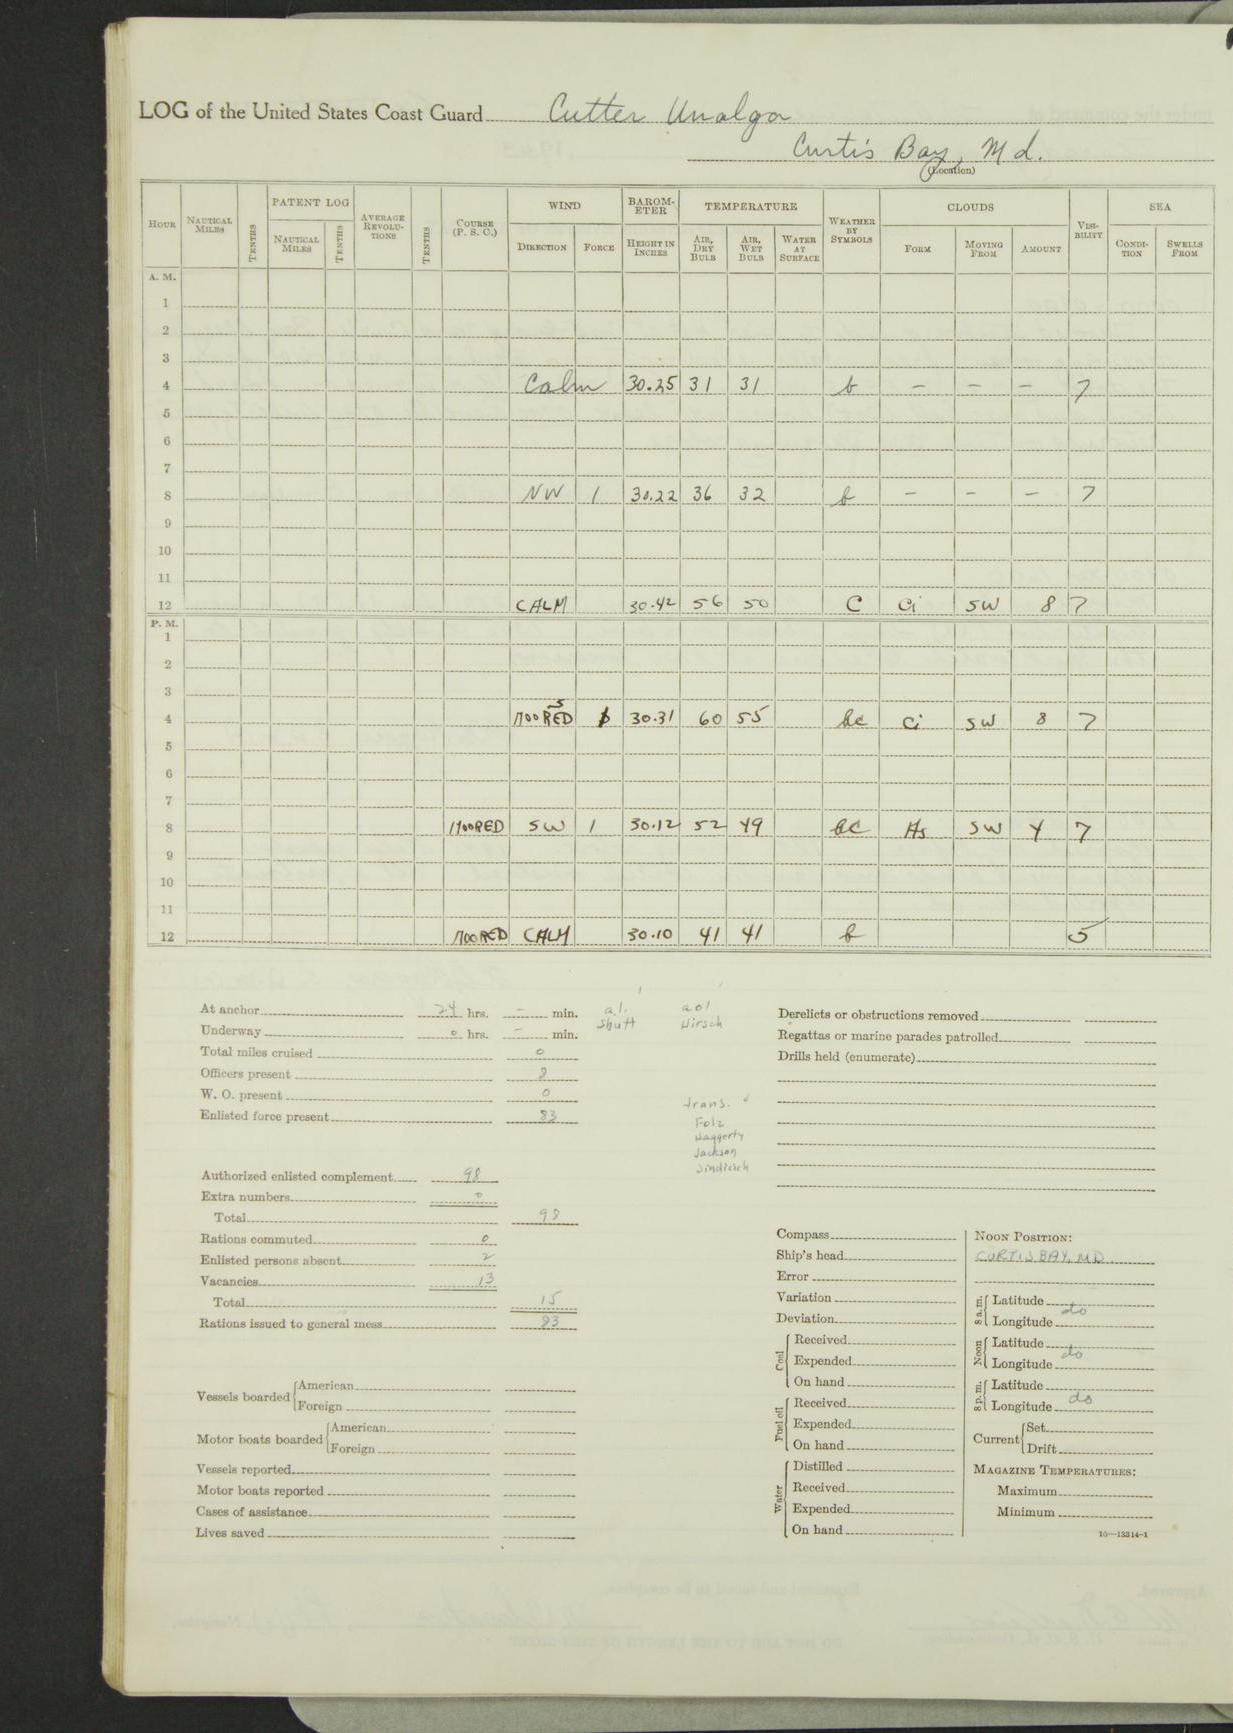 LOG of the United States Coast Guard Cutter Unalga
Curtis Bay, Md.
(Location)
HOUR NAUTICAL MILES TENTHS PATENT LOG NAUTICAL MILES TENTHS AVERAGE REVOLU-TIONS TENTHS COURSE (P. S. C.) WIND DIRECTION FORCE BAROM-ETER HEIGHT IN INCHES TEMPERATURE AIR, DRY BULB AIR, WET BULB WATER AT SURFACE WEATHER BY SYMBOLS CLOUDS FORM MOVING FROM AMOUNT VISI-BILITY SEA CONDI-TION SWELLS FROM
A. M.
1
2
3
4 Calm 30.25 31 31 b – – – 7
5
6
7
8 NW 1 30.22 36 32 b – – – 7
9
10
11
12 CALM 30.42 56 50 C Ci SW 8 7
P. M.
1
2
3
4 MOORED S 30.31 60 55 bc Ci SW 8 7
5
6
7
8 MOORED SW 1 30.12 52 49 bc As SW 4 7
9
10
11
12 MOORED CALM 30.10 41 41 b 5
At anchor 24 hrs. – min.
Underway 0 hrs. – min.
Total miles cruised 0
Officers present 8
W. O. present 0
Enlisted force present 83
Authorized enlisted complement 98
Extra numbers 0
Total 98
Rations commuted 0
Enlisted persons absent 2
Vacancies 13
Total 15
Rations issued to general mess 83
Vessels boarded American
Foreign
Motor boats boarded American
Foreign
Vessels reported
Motor boats reported
Cases of assistance
Lives saved
a.l. aol
Shutt Hirsch
trans.
Folz
Haggerty
Jackson
Derelicts or obstructions removed
Regattas or marine parades patrolled
Drills held (enumerate)
Compass
Ship's head
Error
Variation
Deviation
Coal Received
Expended
On hand
Fuel oil Received
Expended
On hand
Water Distilled
Received
Expended
On hand
NOON POSITION:
CURTIS BAY, MD
8 a. m. Latitude
Longitude do
Noon Latitude
Longitude do
8 p. m. Latitude
Longitude do
Current Set
Drift
MAGAZINE TEMPERATURES:
Maximum
Minimum
16—13314-1